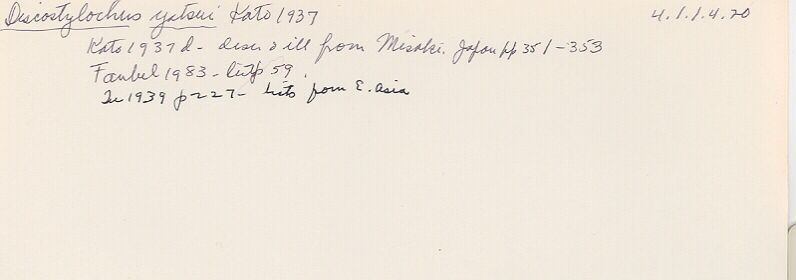 Discostylochus yatsui Kato 1937 4.1.1.4.20
Kato 1937d - descr & ill from Misaki, Japan pp 351-353
Faubel 1983 - list p 59.
Tu 1939 p 227 - lists from E. Asia